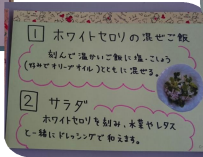 1 ホワイトセロリの混ぜご飯
刻んで温かいご飯に塩・こしょう
(好みでオリーブオイル)とともに混ぜる。
2 サラダ
ホワイトセロリを刻み、水菜やレタス
と一緒にドレッシングで和えます。